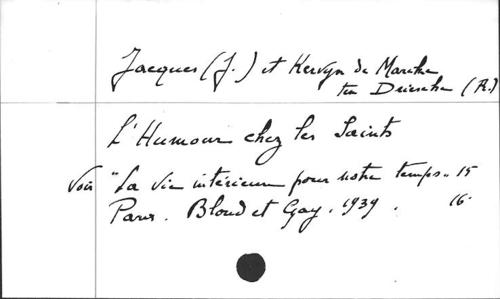 Jacques (J.) et Kervyn de Marcke
ten Driessche (R.)
L'Humour chez les Saints
Voir "La vie intérieure pour notre temps" 15
Paris. Bloud et Gay. 1939. 16°